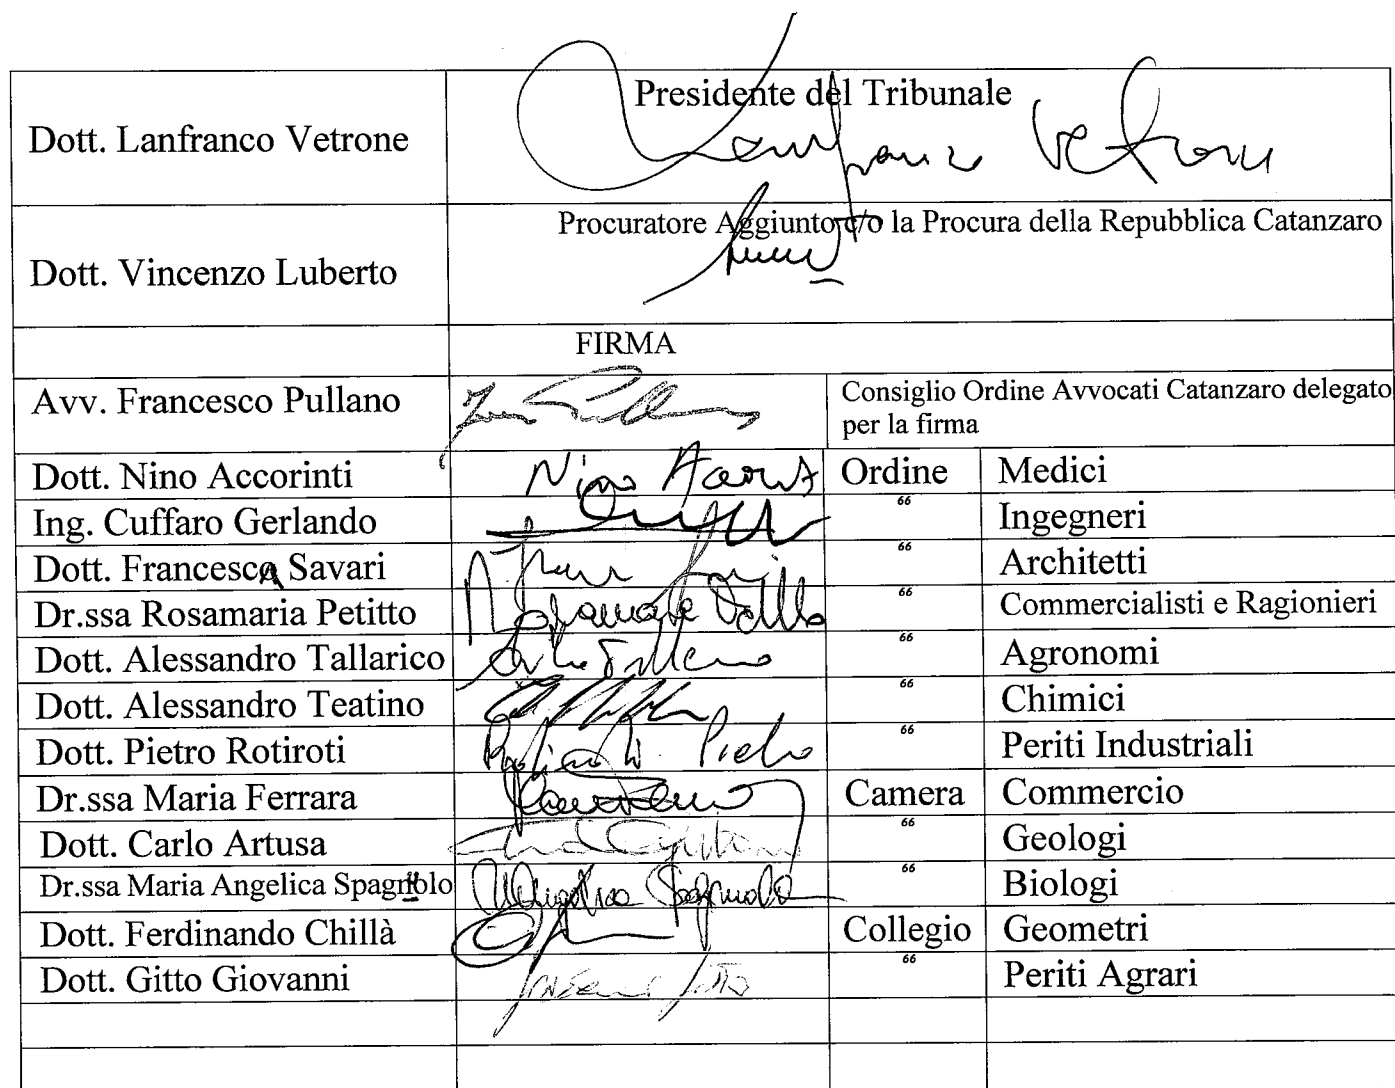 Presidente del Tribunale
Dott. Lanfranco Vetrone
Lanfranco Vetrone
Procuratore Aggiunto c/o la Procura della Repubblica Catanzaro
Dott. Vincenzo Luberto
FIRMA
Avv. Francesco Pullano
Consiglio Ordine Avvocati Catanzaro delegato
per la firma
Dott. Nino Accorinti Nino Ordine Medici
Ing. Cuffaro Gerlando “ Ingegneri
Dott. Francesca Savari “ Architetti
Dr.ssa Rosamaria Petitto “ Commercialisti e Ragionieri
Dott. Alessandro Tallarico “ Agronomi
Dott. Alessandro Teatino “ Chimici
Dott. Pietro Rotiroti Pietro “ Periti Industriali
Dr.ssa Maria Ferrara Camera Commercio
Dott. Carlo Artusa “ Geologi
Dr.ssa Maria Angelica Spagnolo “ Biologi
Dott. Ferdinando Chillà Collegio Geometri
Dott. Gitto Giovanni “ Periti Agrari